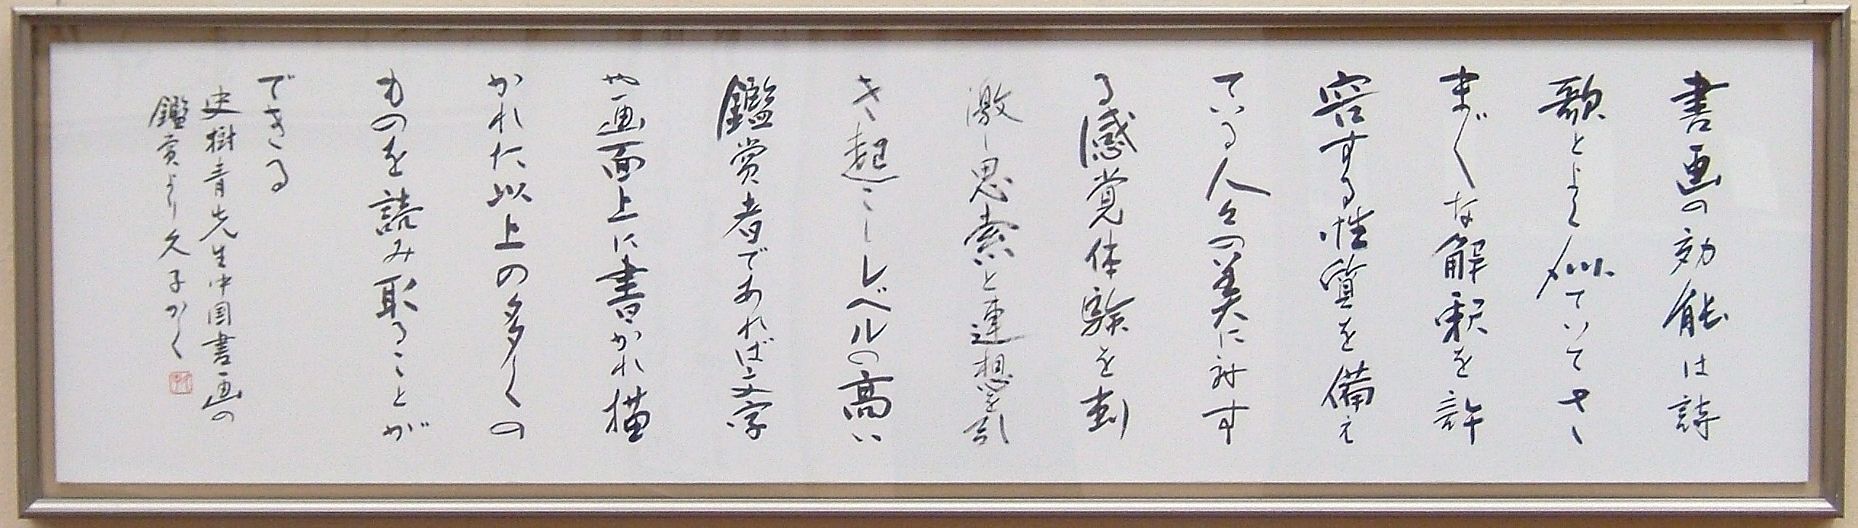 書画の効能は詩
歌とよく似ていてさ
まぐな解釈を許
容する性質を備え
ている人々の美に対す
る感覚体験を刺
激し思索と連想を引
き起こしレベルの高い
鑑賞者であれば文字
や画面上に書かれ描
かれた以上の多くの
ものを読み取ることが
できる
史樹青先生中国書画の
鑑賞より久子かく